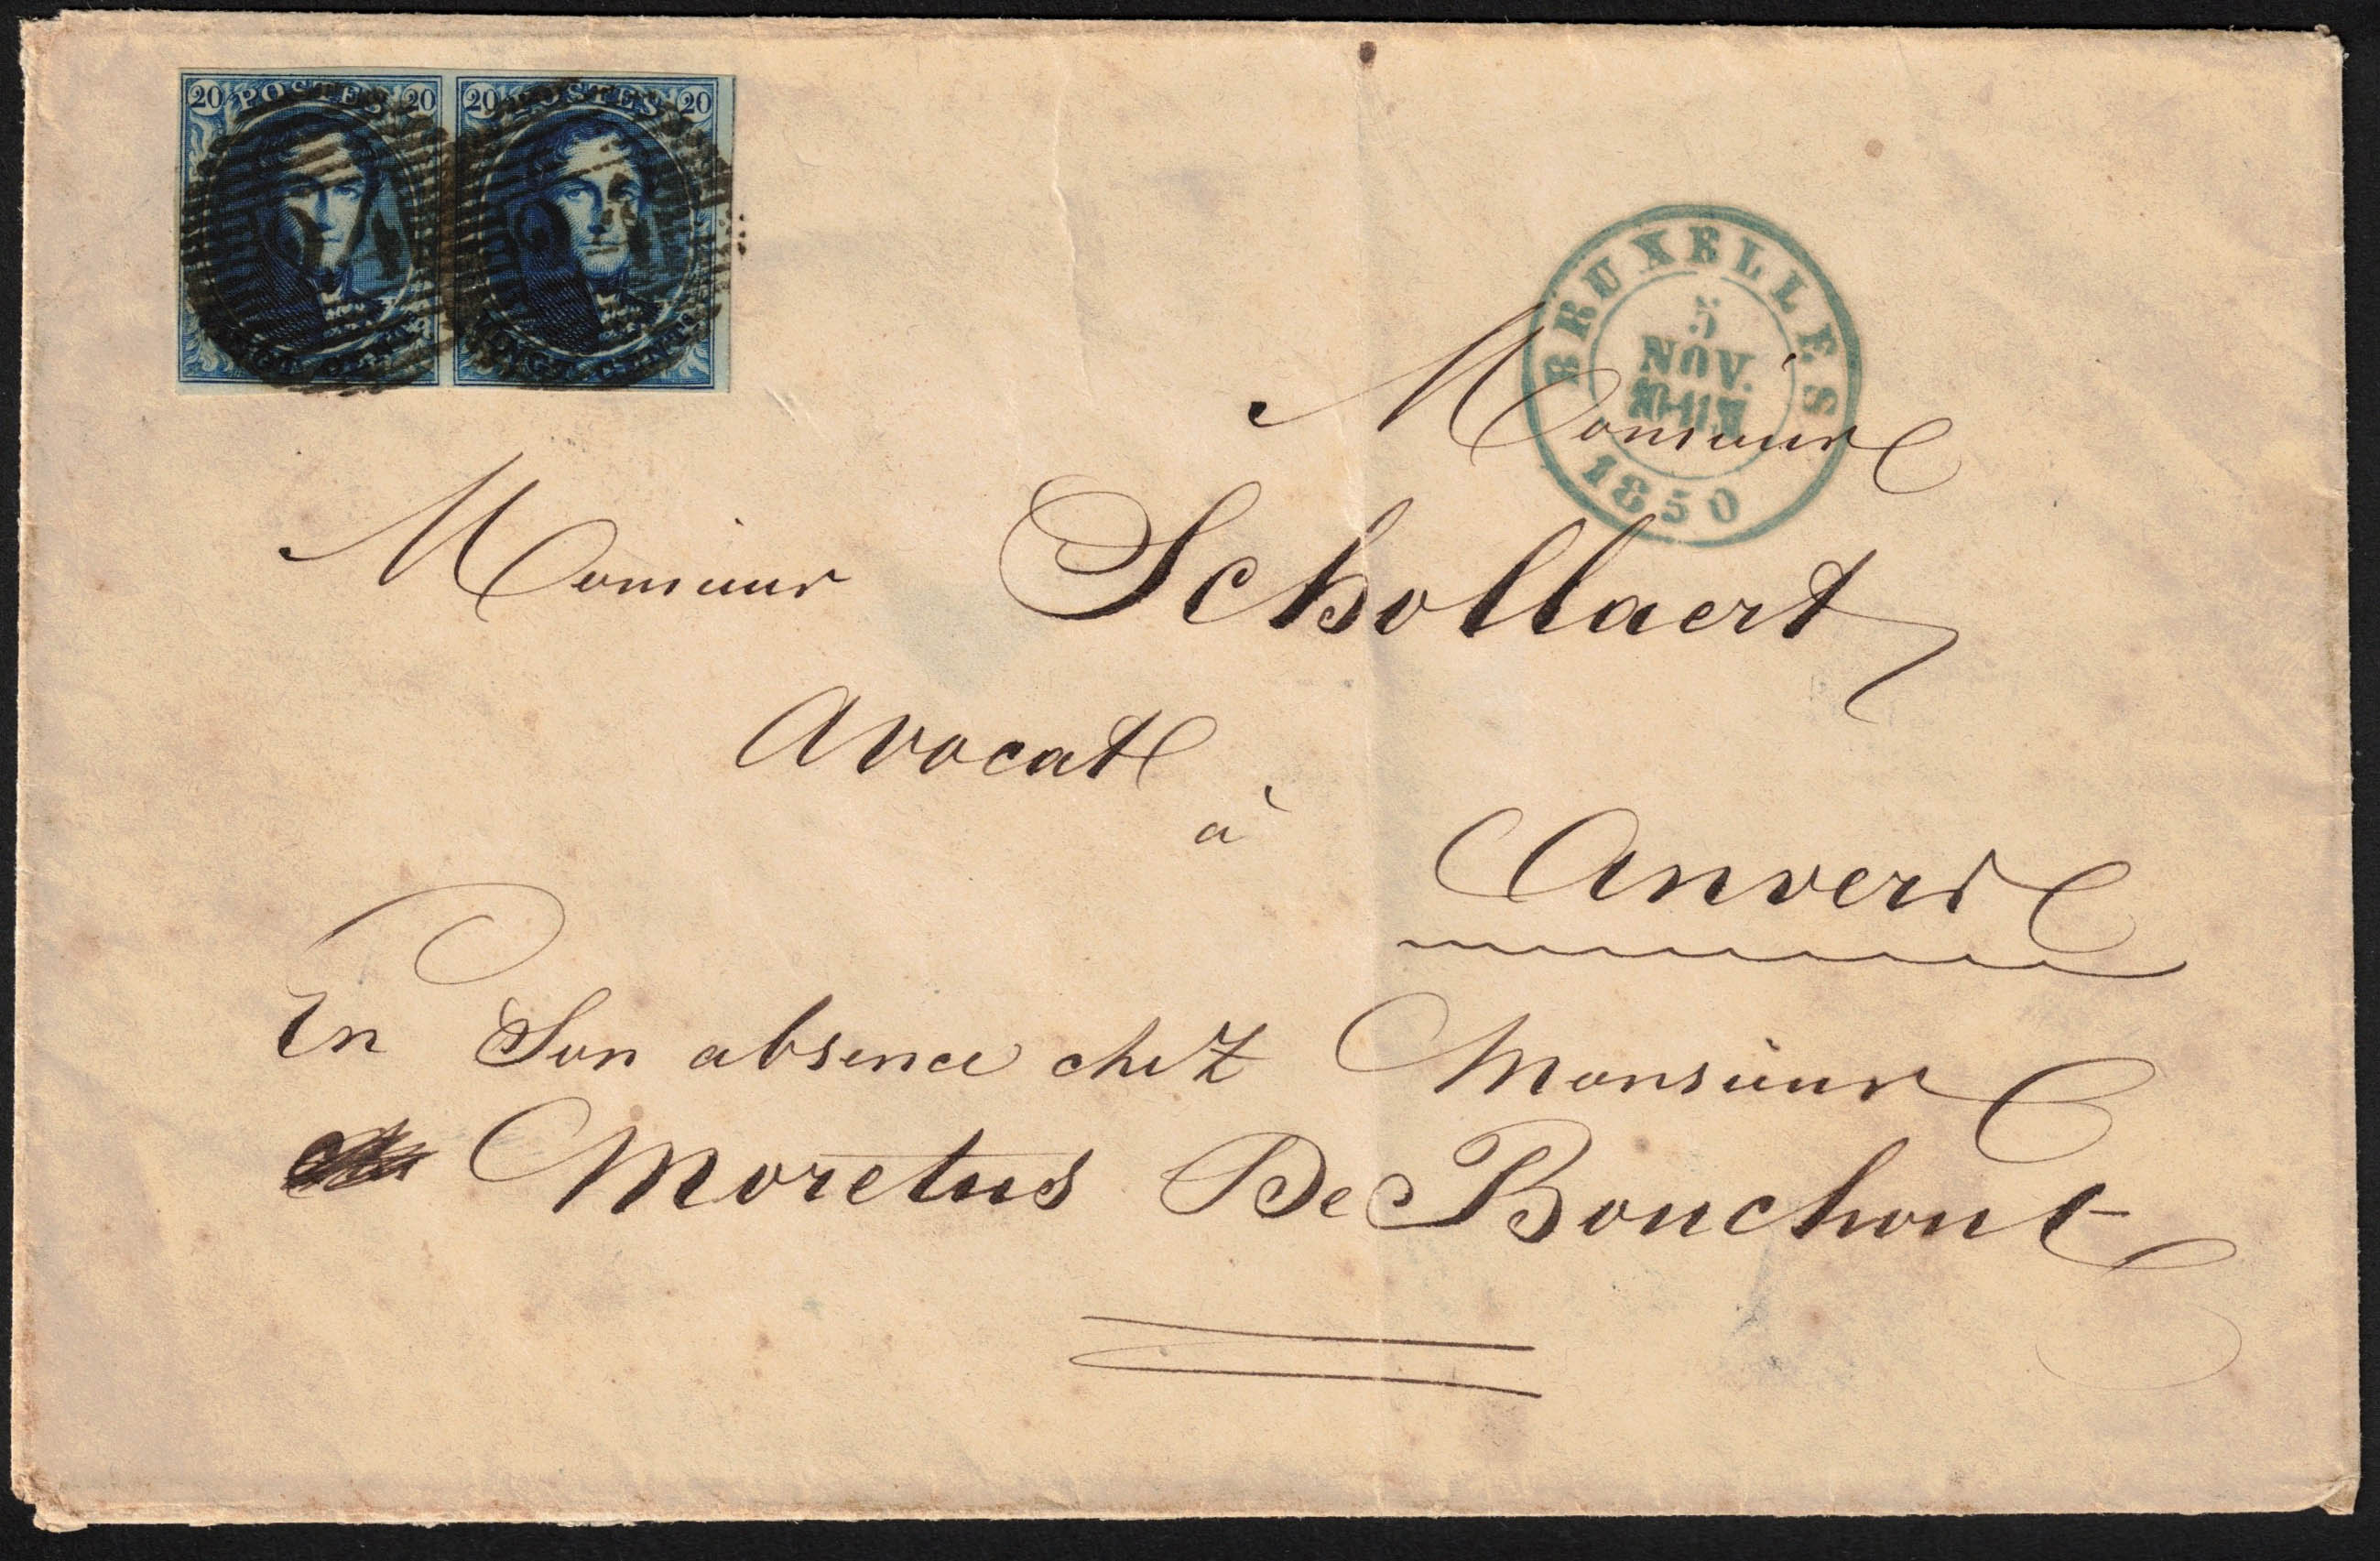 20 POSTES 20
20 POSTES 20
VINGT CENTS
VINGT CENTS
24
BRUXELLES
5
NOV.
1850
Monsieur
Monsieur Schollaert
Avocat
à
Anvers
En Son absence chez Monsieur
Moretus De Bouchout